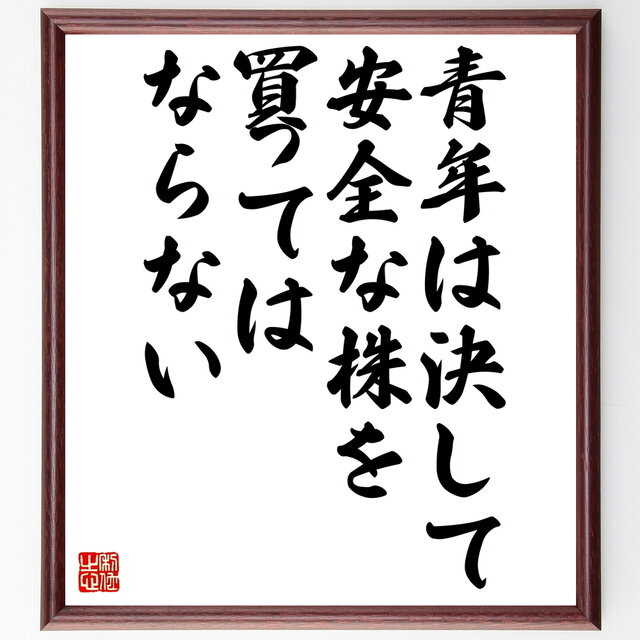 青年は決して
安全な株を
買っては
ならない